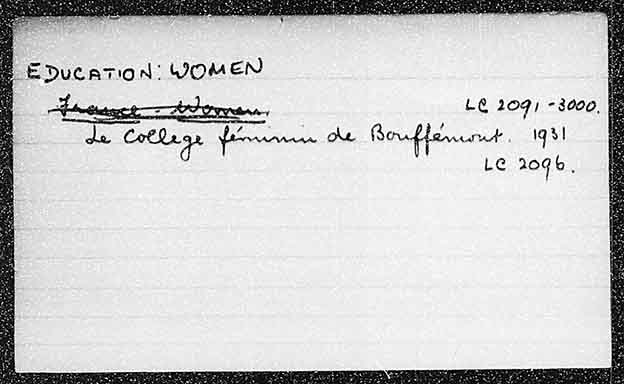 EDUCATION: WOMEN
France - Women. LC 2091-3000.
Le College féminin de Bouffémont. 1931
LC 2096.